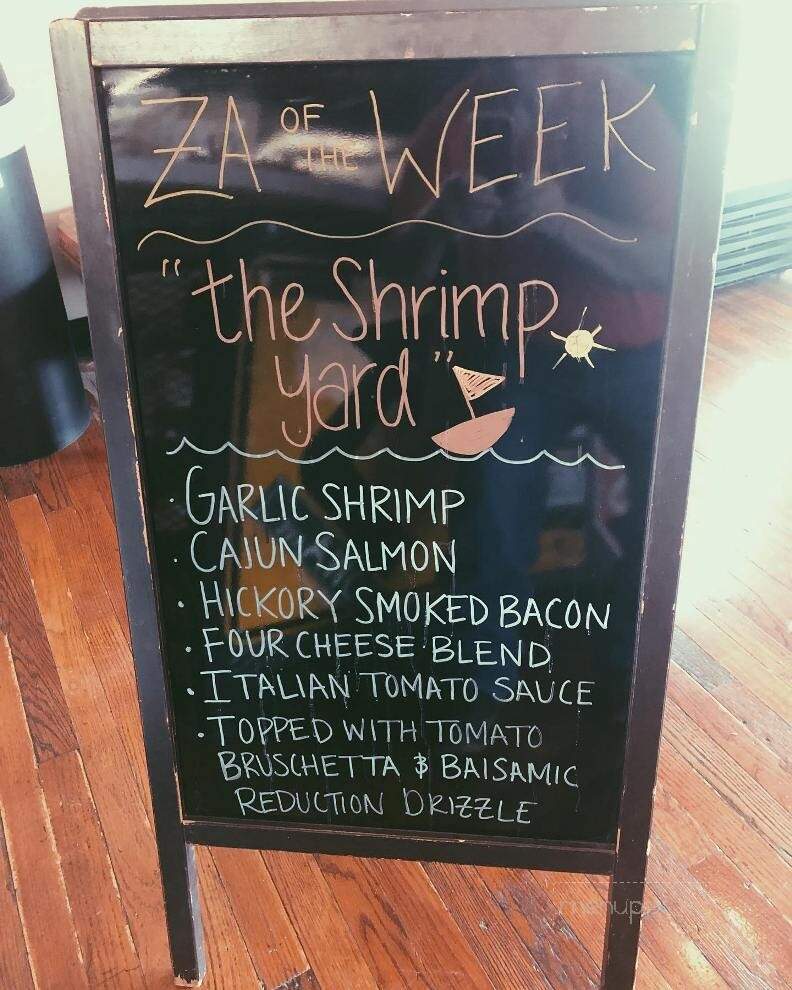 ZA OF THE WEEK
"the Shrimp
yard"
· GARLIC SHRIMP
· CAJUN SALMON
· HICKORY SMOKED BACON
· FOUR CHEESE BLEND
· ITALIAN TOMATO SAUCE
· TOPPED WITH TOMATO
BRUSCHETTA & BALSAMIC
REDUCTION DRIZZLE